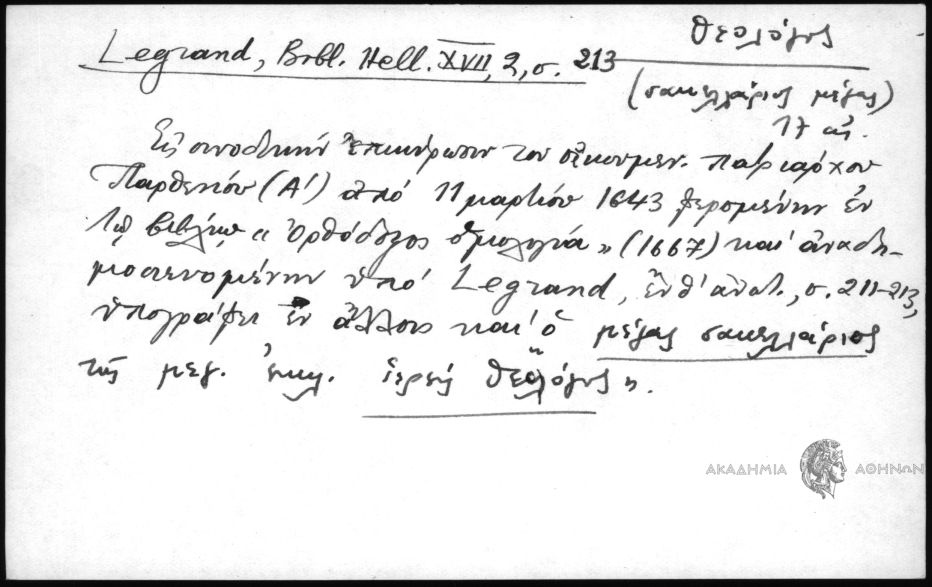 Θεολόγος
Legrand, Bibl. Hell. XVII, 2, σ. 213
(σακελλάριος μέγας)
17 αἰ.
Εἰς συνοδικὴν ἐπικύρωσιν τοῦ οἰκουμεν. πατριάρχου
Παρθενίου (Α') ἀπὸ 11 μαρτίου 1643 φερομένην ἐν
τῷ βιβλίῳ « Ὀρθόδοξος ὁμολογία » (1667) καὶ ἀναδη-
μοσιευομένην ὑπὸ Legrand, ἔνθ' ἀνωτ., σ. 211-213,
ὑπογράφει ἐν ἄλλοις καὶ ὁ μέγας σακελλάριος
τῆς μεγ. ἐκκλ. ἱερεὺς Θεολόγος ».
ΑΚΑΔΗΜΙΑ ΑΘΗΝΩΝ